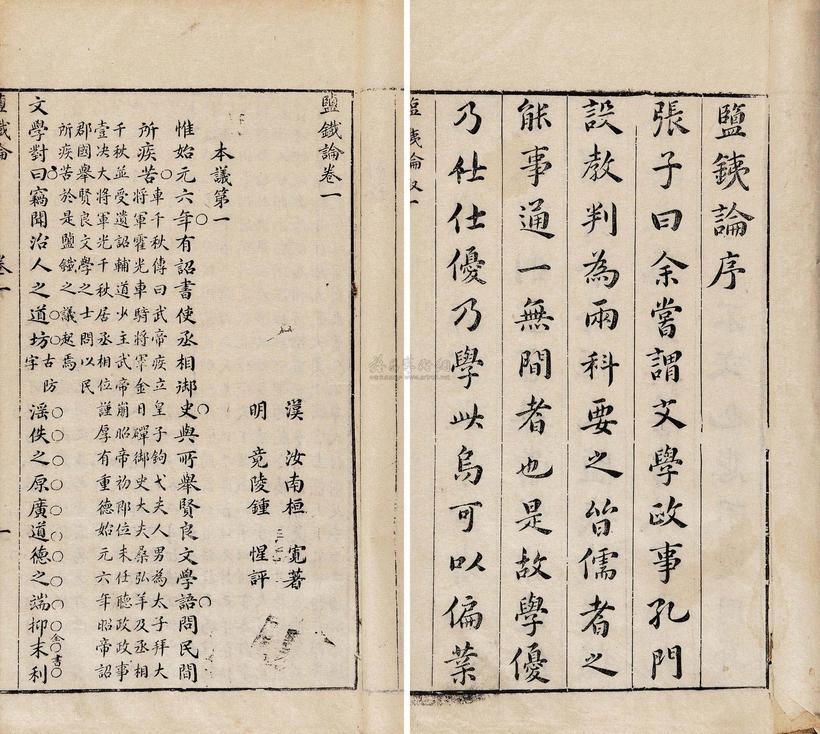 鹽銕論序
張子曰余嘗謂文學政事孔門
設教判為兩科要之皆儒者之
能事通一無間者也是故學優
乃仕仕優乃學此烏可以偏業
鹽鐵論卷一
漢 汝南桓 寬著
明 竟陵鍾 惺評
本議第一
惟始元六年有詔書使丞相御史與所舉賢良文學語問民間
所疾苦
車千秋傳曰武帝疾立皇子鈎弋夫人男為太子拜大
將軍霍光車騎將軍金日磾御史大夫桑弘羊及丞相
千秋並受遺詔輔道少主武帝崩昭帝初即位未任聽政政事
壹决大將軍光千秋居丞相位謹厚有重德始元六年昭帝詔
郡國舉賢良文學之士問以民
所疾苦於是鹽鐵之議起焉
文學對曰竊聞治人之道坊古防字滛佚之原廣道德之端抑末利
鹽鐵論 卷一 一